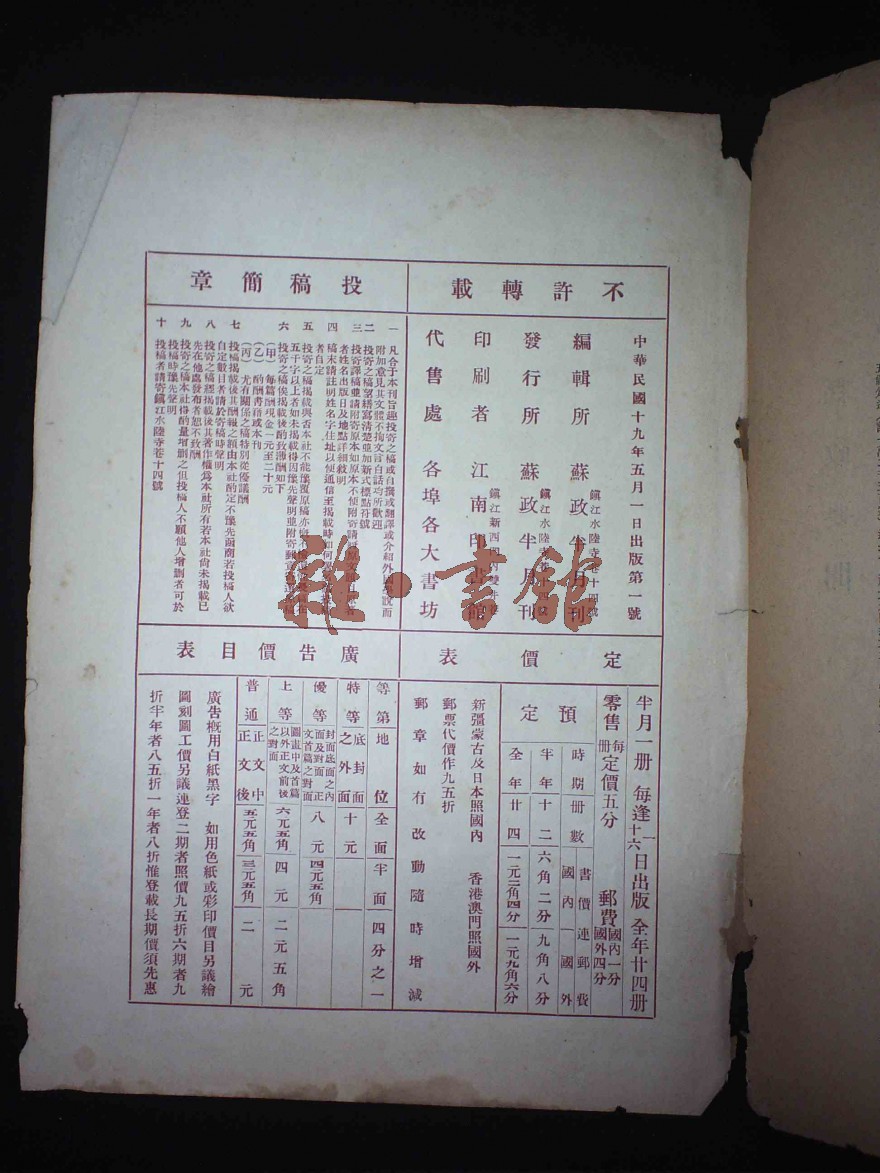 不許轉載
中華民國十九年五月一日出版第一號
編輯所 蘇政半月刊
鎮江水陸寺巷十四號
發行所 蘇政半月刊
鎮江水陸寺巷十四號
印刷者 江南印書館
鎮江新西門內
代售處 各埠各大書坊
投稿簡章
一 凡合于本刊旨趣投寄之稿或自撰或翻譯或介紹外國學說而
附加意見其文體不拘文言白話均所歡迎
二 投寄之稿望繕寫清楚並加新式標點符號
三 投寄譯稿並請附寄原本如原本不便附寄請
者姓名出版日及地點詳細敘明
四 稿末請註明姓名字住址以便通信至揭載時如何
者自定
五 投寄之稿揭載與否本社不能豫覆原稿亦
五千字以上者如未揭載得因豫先聲明並附寄郵
六 投寄之稿俟揭載後酌致薄酬如下
(甲) 每篇酬現金一元至二十元
(乙) 酌酬書籍或本刊
(丙) 尤有關係之稿特別從優議酬
七 投稿揭載後其酬報之額由本社酌定不豫先函商若投稿人欲
自定數目者請於寄稿時聲明
八 投寄之稿經揭載後其著作權為本社所有若本社尚未揭載已
先在他處發布者恕不致酬
九 投寄之稿本社得酌量增刪之但投稿人不願他人增刪者可於
投稿時豫先聲明
十 投稿者請寄鎮江水陸寺巷十四號
定價表
半月一冊 每逢一十六日出版 全年廿四冊
零售 每冊定價五分 郵費 國內一分 國外四分
預定
時期 冊數 書價連郵費
國內 國外
半年 十二 六角二分 九角八分
全年 廿四 一元二角四分 一元九角六分
新疆蒙古及日本照國內 香港澳門照國外
郵票代價作九五折
郵章如有改動隨時增減
廣告價目表
等第 地位 全面 半面 四分之一
特等 底封面之外面 十元
優等 封面底面之內面及對面正文首篇之對面 八元 四元五角
上等 圖畫中及首篇以外正文前後之對面 六元五角 四元 二元五角
普通 正文中正文後 五元五角 三元五角 二元
廣告概用白紙黑字 如用色紙或彩印價目另議繪
圖刻圖工價另議連登二期者照價九五折六期者九
折半年者八五折一年者八折惟登載長期價須先惠
雜·書館